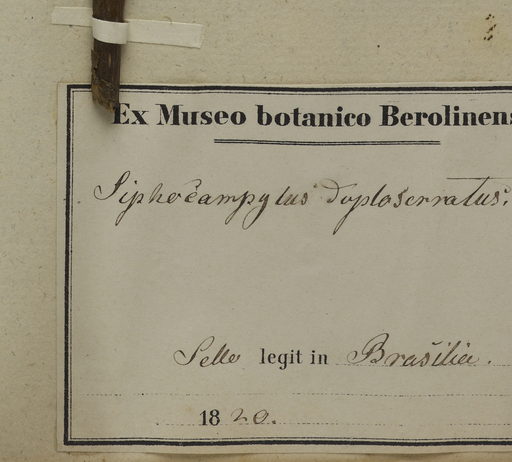 Ex Museo botanico Berolinens
Siphocampylus duploserratus.
Sello legit in Brasilia.
1820.